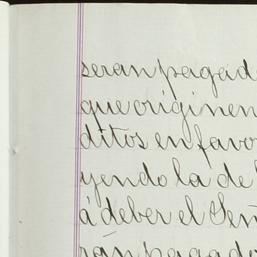 seran pagad
que originen
ditos en favo
yendo la de
á deber el Señ
rán pagado